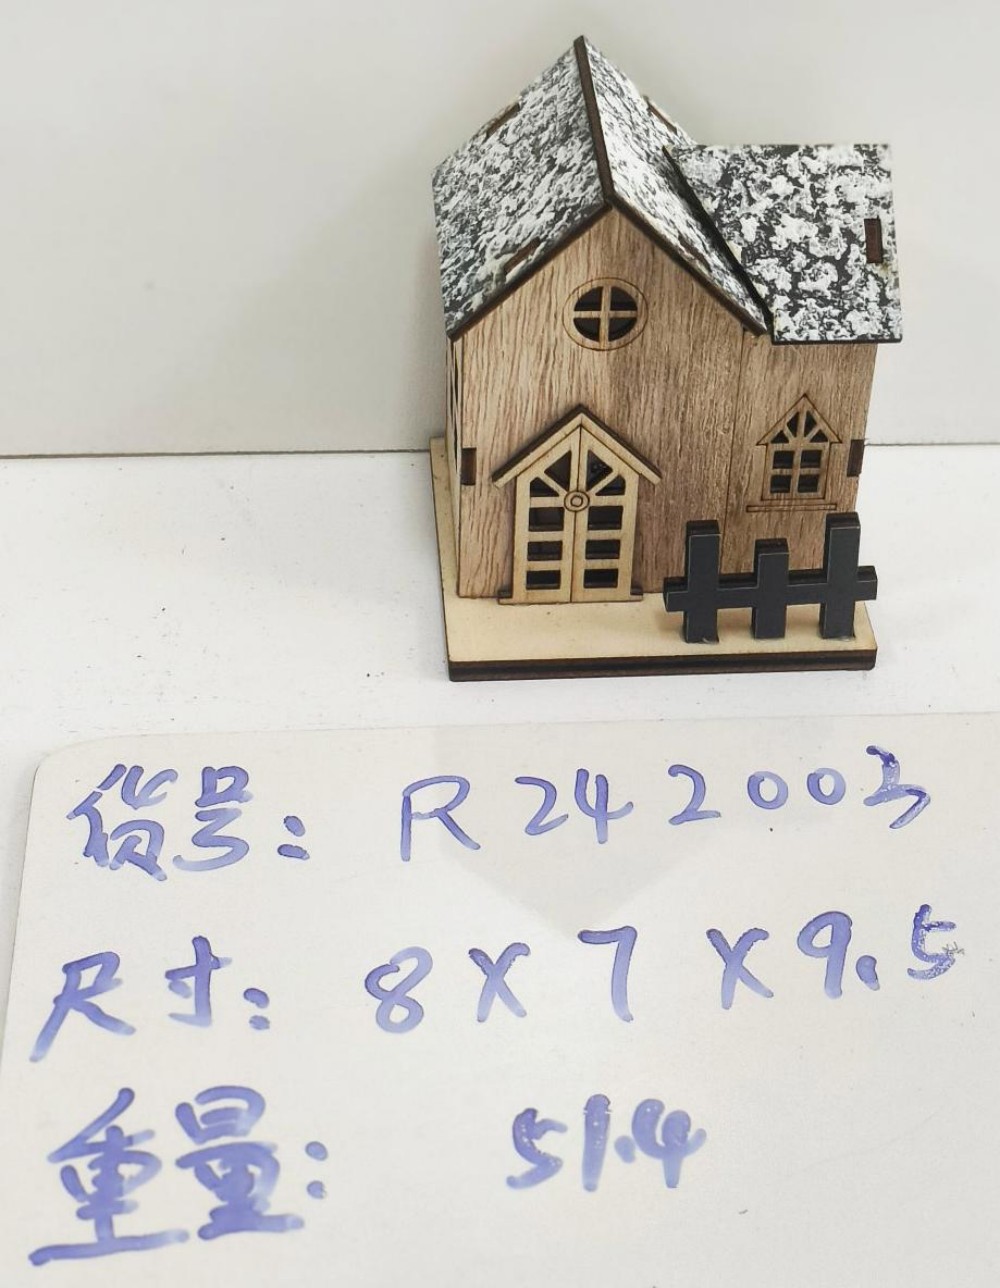 货号: R242003
尺寸: 8X7X9.5
重量: 51.4